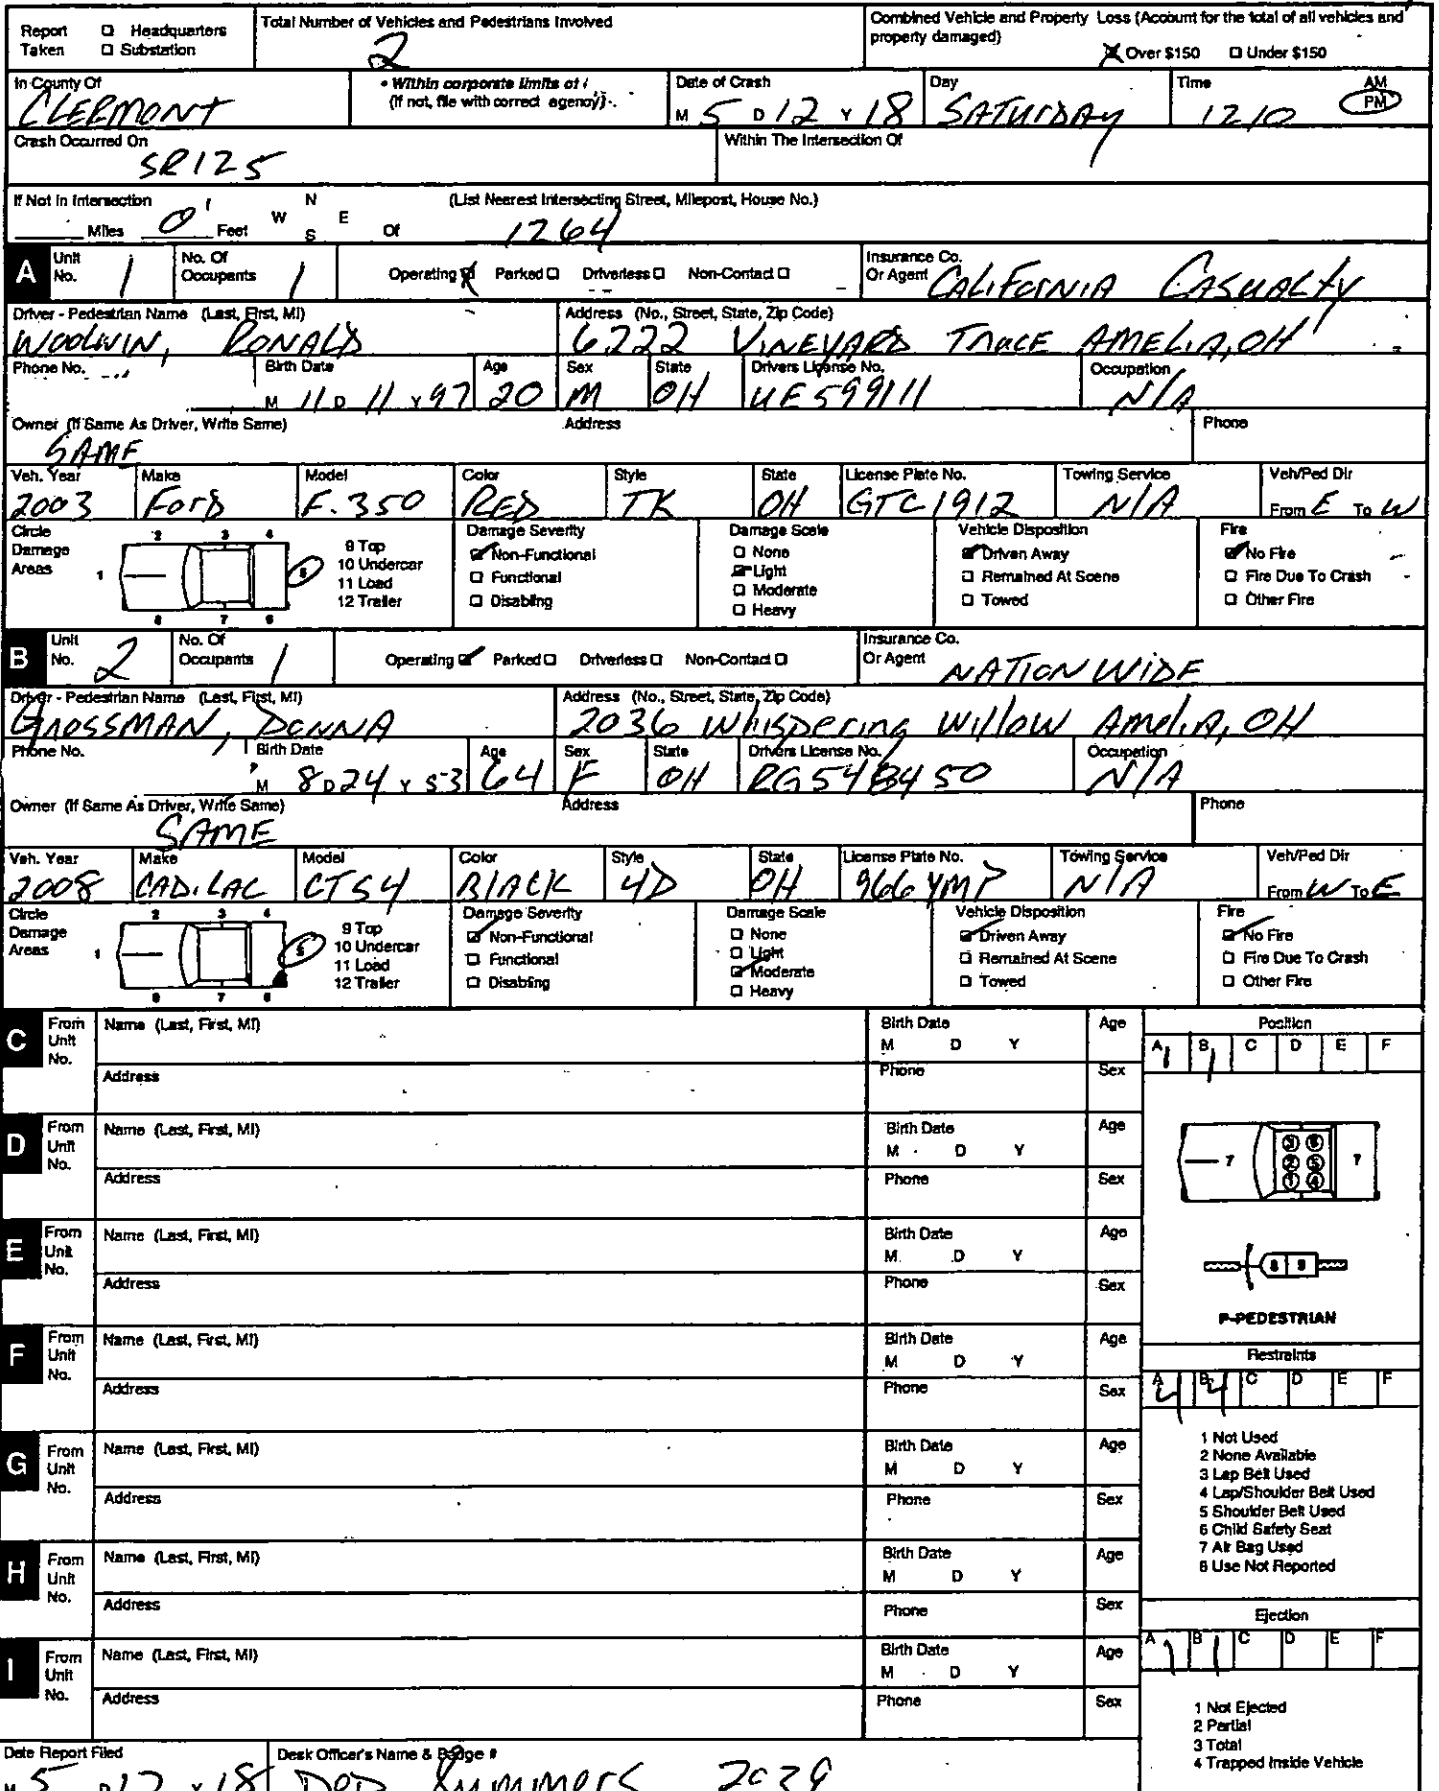 Report Taken ☐ Headquarters ☐ Substation
Total Number of Vehicles and Pedestrians Involved 2
Combined Vehicle and Property Loss (Account for the total of all vehicles and property damaged) ☒ Over $150 ☐ Under $150
In County Of CLERMONT
• Within corporate limits of (If not, file with correct agency)
Date of Crash M 5 D 12 Y 18
Day SATURDAY
Time 1210 AM PM
Crash Occurred On SR125
Within The Intersection Of
If Not In Intersection ___ Miles 0' Feet N W E S Of
(List Nearest Intersecting Street, Milepost, House No.) 1264
A Unit No. 1 No. Of Occupants 1 Operating ☒ Parked ☐ Driverless ☐ Non-Contact ☐
Insurance Co. Or Agent CALIFORNIA CASUALTY
Driver - Pedestrian Name (Last, First, MI) WOOLWIN, RONALD
Address (No., Street, State, Zip Code) 6222 VINEYARD TRACE AMELIA, OH
Phone No. Birth Date M 11 D 11 Y 97 Age 20 Sex M State OH Drivers License No. UE599111 Occupation N/A
Owner (If Same As Driver, Write Same) SAME Address Phone
Veh. Year 2003 Make Ford Model F.350 Color RED Style TK State OH License Plate No. GTC1912 Towing Service N/A Veh/Ped Dir From E To W
Circle Damage Areas 1 2 3 4 5 6 7 8
9 Top
10 Undercar
11 Load
12 Trailer
Damage Severity ☑ Non-Functional ☐ Functional ☐ Disabling
Damage Scale ☐ None ☑ Light ☐ Moderate ☐ Heavy
Vehicle Disposition ☑ Driven Away ☐ Remained At Scene ☐ Towed
Fire ☑ No Fire ☐ Fire Due To Crash ☐ Other Fire
B Unit No. 2 No. Of Occupants 1 Operating ☑ Parked ☐ Driverless ☐ Non-Contact ☐
Insurance Co. Or Agent NATIONWIDE
Driver - Pedestrian Name (Last, First, MI) GROSSMAN, DONNA
Address (No., Street, State, Zip Code) 2036 Whispering Willow Amelia, OH
Phone No. Birth Date M 8 D 24 Y 53 Age 64 Sex F State OH Drivers License No. RG548450 Occupation N/A
Owner (If Same As Driver, Write Same) SAME Address Phone
Veh. Year 2008 Make CADILAC Model CTS4 Color BLACK Style 4D State OH License Plate No. 966YMP Towing Service N/A Veh/Ped Dir From W To E
Circle Damage Areas 1 2 3 4 5 6 7 8
9 Top
10 Undercar
11 Load
12 Trailer
Damage Severity ☑ Non-Functional ☐ Functional ☐ Disabling
Damage Scale ☐ None ☐ Light ☑ Moderate ☐ Heavy
Vehicle Disposition ☑ Driven Away ☐ Remained At Scene ☐ Towed
Fire ☑ No Fire ☐ Fire Due To Crash ☐ Other Fire
C From Unit No. Name (Last, First, MI) Birth Date M D Y Age
Address Phone Sex
Position
A 1 B 1 C D E F
D From Unit No. Name (Last, First, MI) Birth Date M D Y Age
Address Phone Sex
7 3 6 2 5 1 4 7
E From Unit No. Name (Last, First, MI) Birth Date M D Y Age
Address Phone Sex
8 9
P-PEDESTRIAN
F From Unit No. Name (Last, First, MI) Birth Date M D Y Age
Address Phone Sex
Restraints
A 4 B 4 C D E F
G From Unit No. Name (Last, First, MI) Birth Date M D Y Age
Address Phone Sex
1 Not Used
2 None Available
3 Lap Belt Used
4 Lap/Shoulder Belt Used
5 Shoulder Belt Used
6 Child Safety Seat
7 Air Bag Used
8 Use Not Reported
H From Unit No. Name (Last, First, MI) Birth Date M D Y Age
Address Phone Sex
Ejection
A 1 B 1 C D E F
I From Unit No. Name (Last, First, MI) Birth Date M D Y Age
Address Phone Sex
1 Not Ejected
2 Partial
3 Total
4 Trapped Inside Vehicle
Date Report Filed M 5 D 12 Y 18
Desk Officer's Name & Badge #